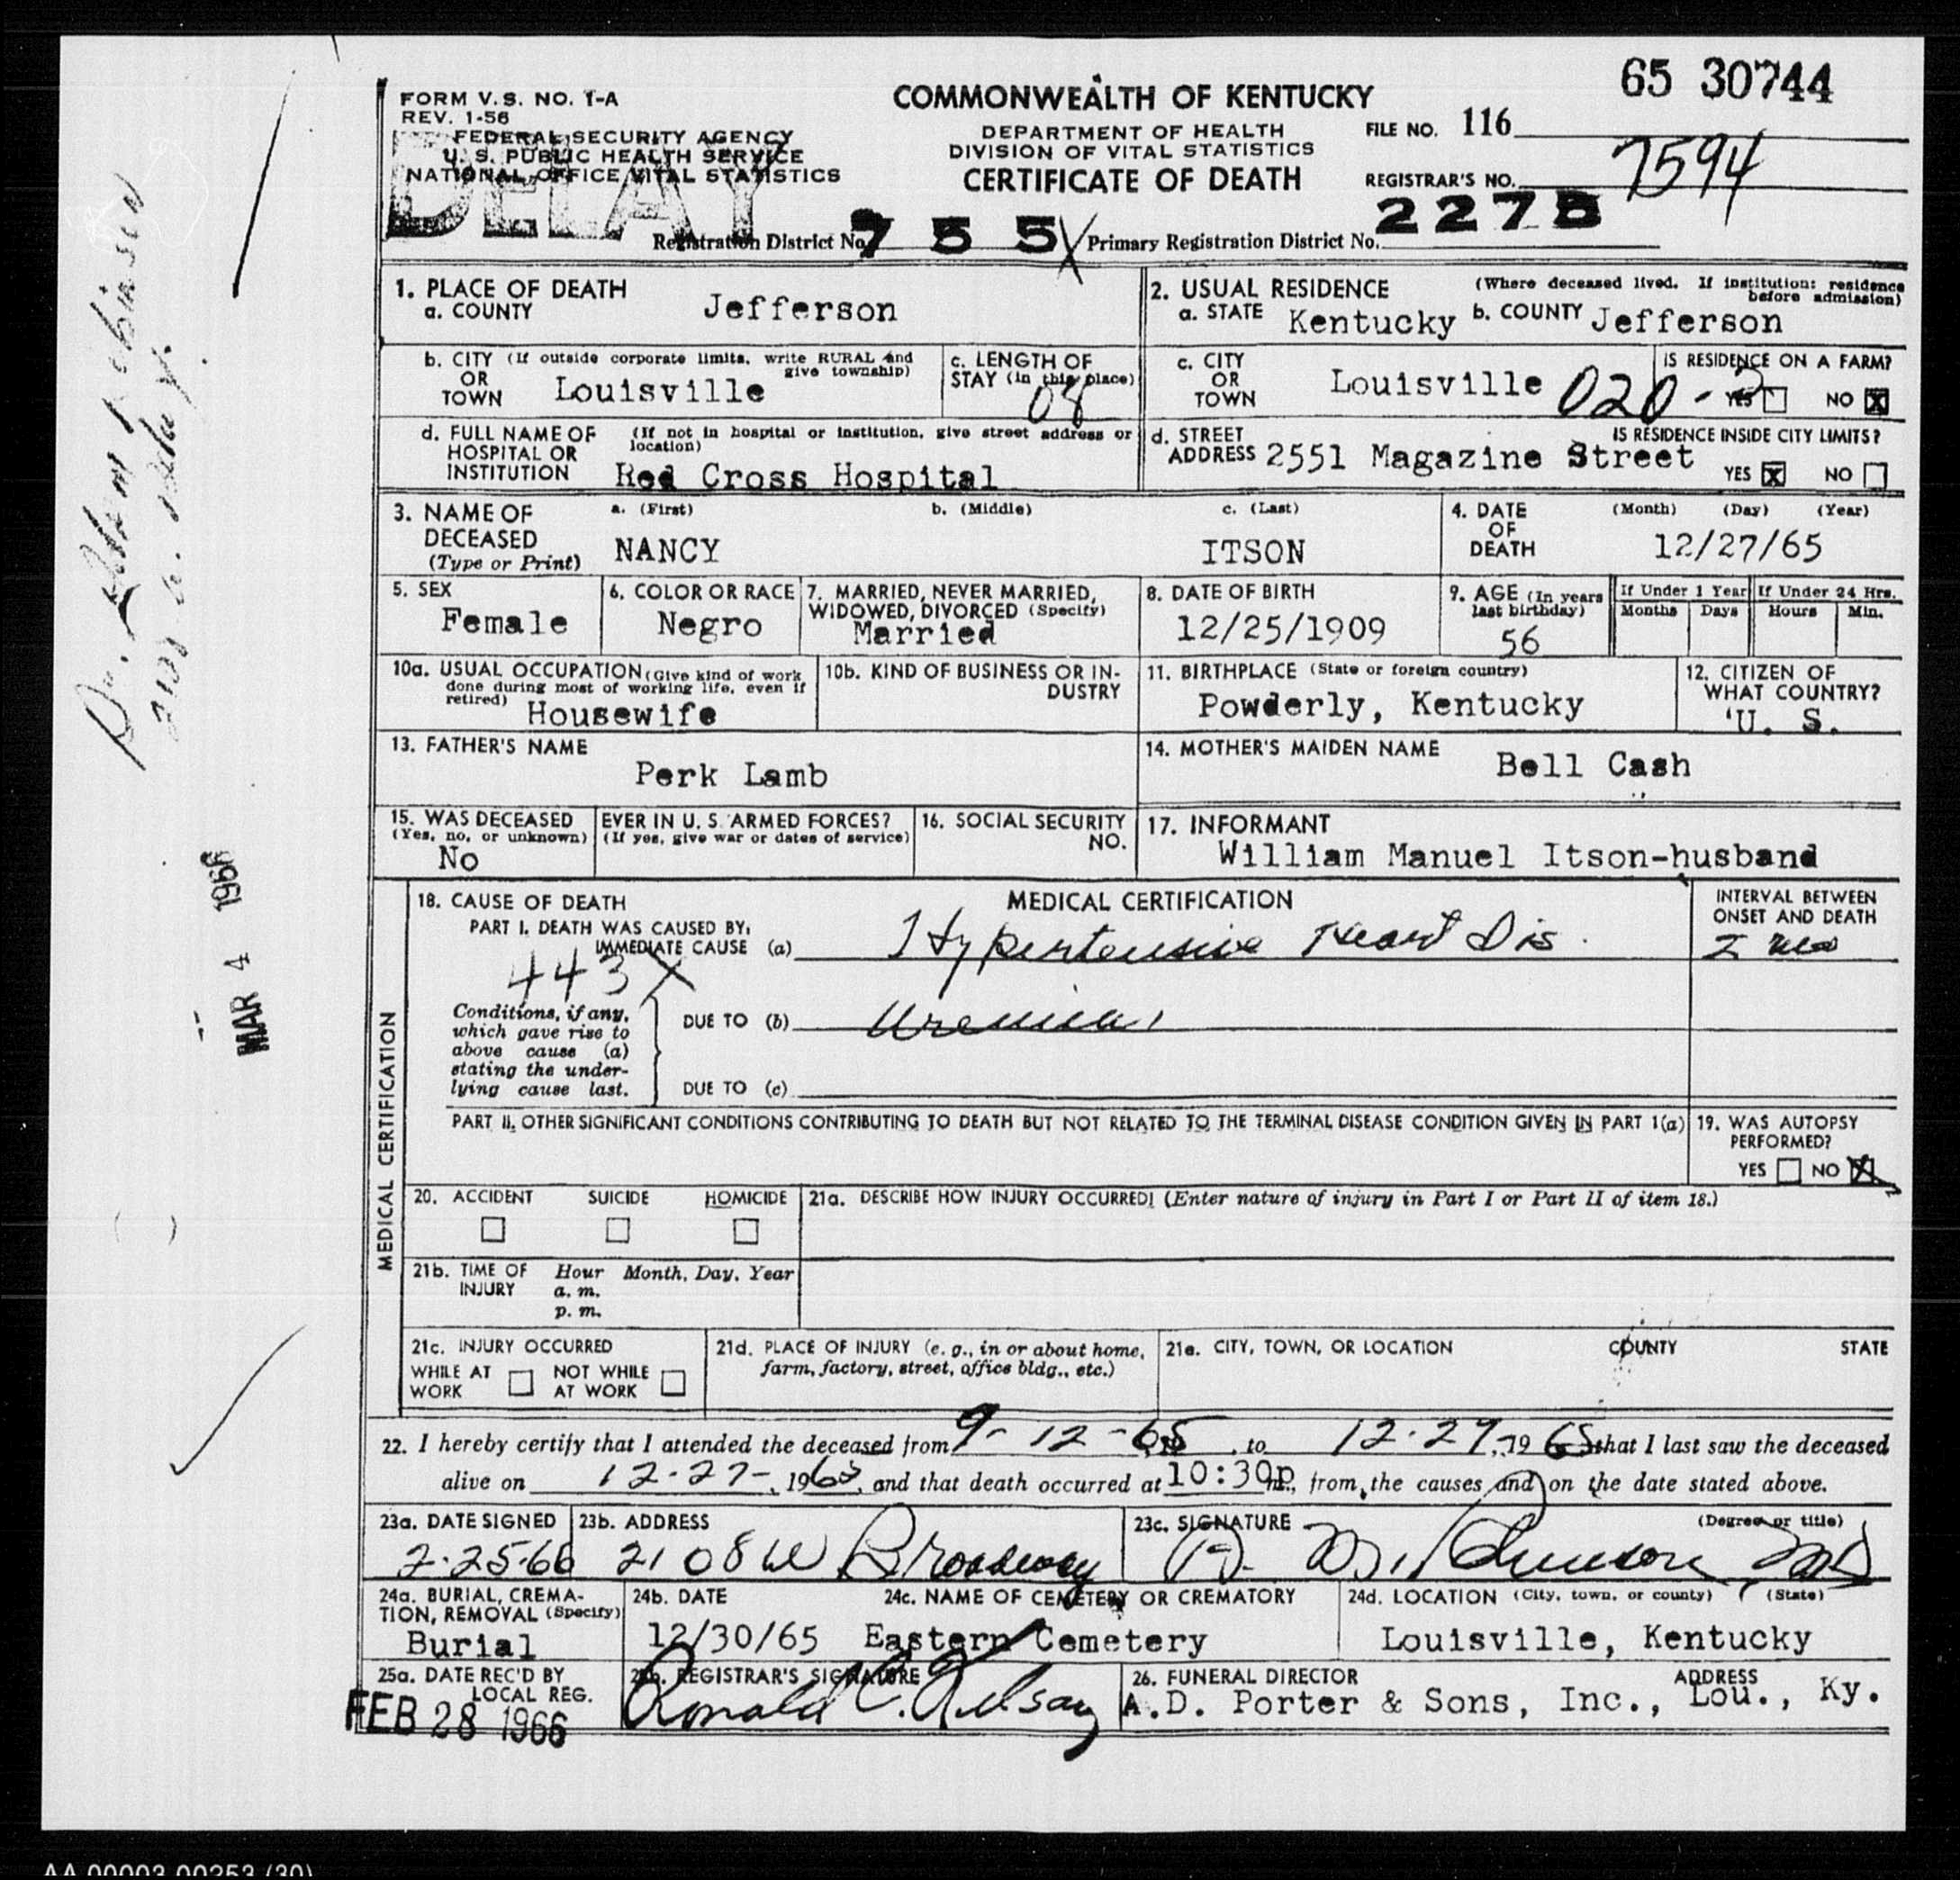 65 30744
FORM V.S. NO. 1-A
REV. 1-56
FEDERAL SECURITY AGENCY
U. S. PUBLIC HEALTH SERVICE
NATIONAL OFFICE VITAL STATISTICS
DELAY
COMMONWEALTH OF KENTUCKY
DEPARTMENT OF HEALTH
DIVISION OF VITAL STATISTICS
CERTIFICATE OF DEATH
FILE NO. 116
REGISTRAR'S NO. 7594
Registration District No. 755 X Primary Registration District No. 2275
1. PLACE OF DEATH
a. COUNTY Jefferson
2. USUAL RESIDENCE (Where deceased lived. If institution: residence before admission)
a. STATE Kentucky b. COUNTY Jefferson
b. CITY (If outside corporate limits, write RURAL and give township)
OR
TOWN Louisville
c. LENGTH OF
STAY (in this place)
08
c. CITY
OR
TOWN Louisville 020-2
IS RESIDENCE ON A FARM?
YES NO X
d. FULL NAME OF
HOSPITAL OR
INSTITUTION
(If not in hospital or institution, give street address or location)
Red Cross Hospital
d. STREET
ADDRESS 2551 Magazine Street
IS RESIDENCE INSIDE CITY LIMITS?
YES X NO
3. NAME OF
DECEASED
(Type or Print)
a. (First) b. (Middle) c. (Last)
NANCY ITSON
4. DATE
OF
DEATH
(Month) (Day) (Year)
12/27/65
5. SEX
Female
6. COLOR OR RACE
Negro
7. MARRIED, NEVER MARRIED,
WIDOWED, DIVORCED (Specify)
Married
8. DATE OF BIRTH
12/25/1909
9. AGE (In years
last birthday)
56
If Under 1 Year If Under 24 Hrs.
Months Days Hours Min.
10a. USUAL OCCUPATION (Give kind of work
done during most of working life, even if
retired) Housewife
10b. KIND OF BUSINESS OR IN-
DUSTRY
11. BIRTHPLACE (State or foreign country)
Powderly, Kentucky
12. CITIZEN OF
WHAT COUNTRY?
U. S.
13. FATHER'S NAME
Perk Lamb
14. MOTHER'S MAIDEN NAME
Bell Cash
15. WAS DECEASED EVER IN U. S. ARMED FORCES?
(Yes, no, or unknown) (If yes, give war or dates of service)
No
16. SOCIAL SECURITY
NO.
17. INFORMANT
William Manuel Itson-husband
MEDICAL CERTIFICATION
18. CAUSE OF DEATH
MEDICAL CERTIFICATION
INTERVAL BETWEEN
ONSET AND DEATH
PART I. DEATH WAS CAUSED BY:
IMMEDIATE CAUSE (a) Hypertensive Heart Dis.
443 X
Conditions, if any,
which gave rise to
above cause (a)
stating the under-
lying cause last.
DUE TO (b) Uremia
DUE TO (c)
PART II. OTHER SIGNIFICANT CONDITIONS CONTRIBUTING TO DEATH BUT NOT RELATED TO THE TERMINAL DISEASE CONDITION GIVEN IN PART I(a)
19. WAS AUTOPSY
PERFORMED?
YES NO X
20. ACCIDENT SUICIDE HOMICIDE
21a. DESCRIBE HOW INJURY OCCURRED! (Enter nature of injury in Part I or Part II of item 18.)
21b. TIME OF
INJURY
Hour Month, Day, Year
a. m.
p. m.
21c. INJURY OCCURRED
WHILE AT
WORK
NOT WHILE
AT WORK
21d. PLACE OF INJURY (e. g., in or about home,
farm, factory, street, office bldg., etc.)
21e. CITY, TOWN, OR LOCATION COUNTY STATE
22. I hereby certify that I attended the deceased from 9-12-65, to 12-27, 1965 that I last saw the deceased
alive on 12-27-, 1965, and that death occurred at 10:30p m., from the causes and on the date stated above.
23a. DATE SIGNED
2-25-66
23b. ADDRESS
2108 W Broadway
23c. SIGNATURE (Degree or title)
MD
24a. BURIAL, CREMA-
TION, REMOVAL (Specify)
Burial
24b. DATE
12/30/65
24c. NAME OF CEMETERY OR CREMATORY
Eastern Cemetery
24d. LOCATION (City, town, or county) (State)
Louisville, Kentucky
25a. DATE REC'D BY
LOCAL REG.
FEB 28 1966
25b. REGISTRAR'S SIGNATURE
Ronald C.
26. FUNERAL DIRECTOR ADDRESS
A.D. Porter & Sons, Inc., Lou., Ky.
MAR 4 1966
AA 00003 00253 (30)